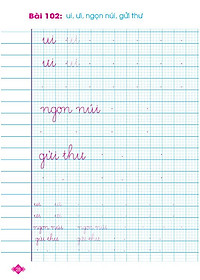 Bài 102: ui, ưi, ngọn núi, gửi thư
ui ui
ưi ưi
ngọn núi
gửi thư
ui ui
ưi ưi
ngọn núi ngọn núi
gửi thư gửi thư